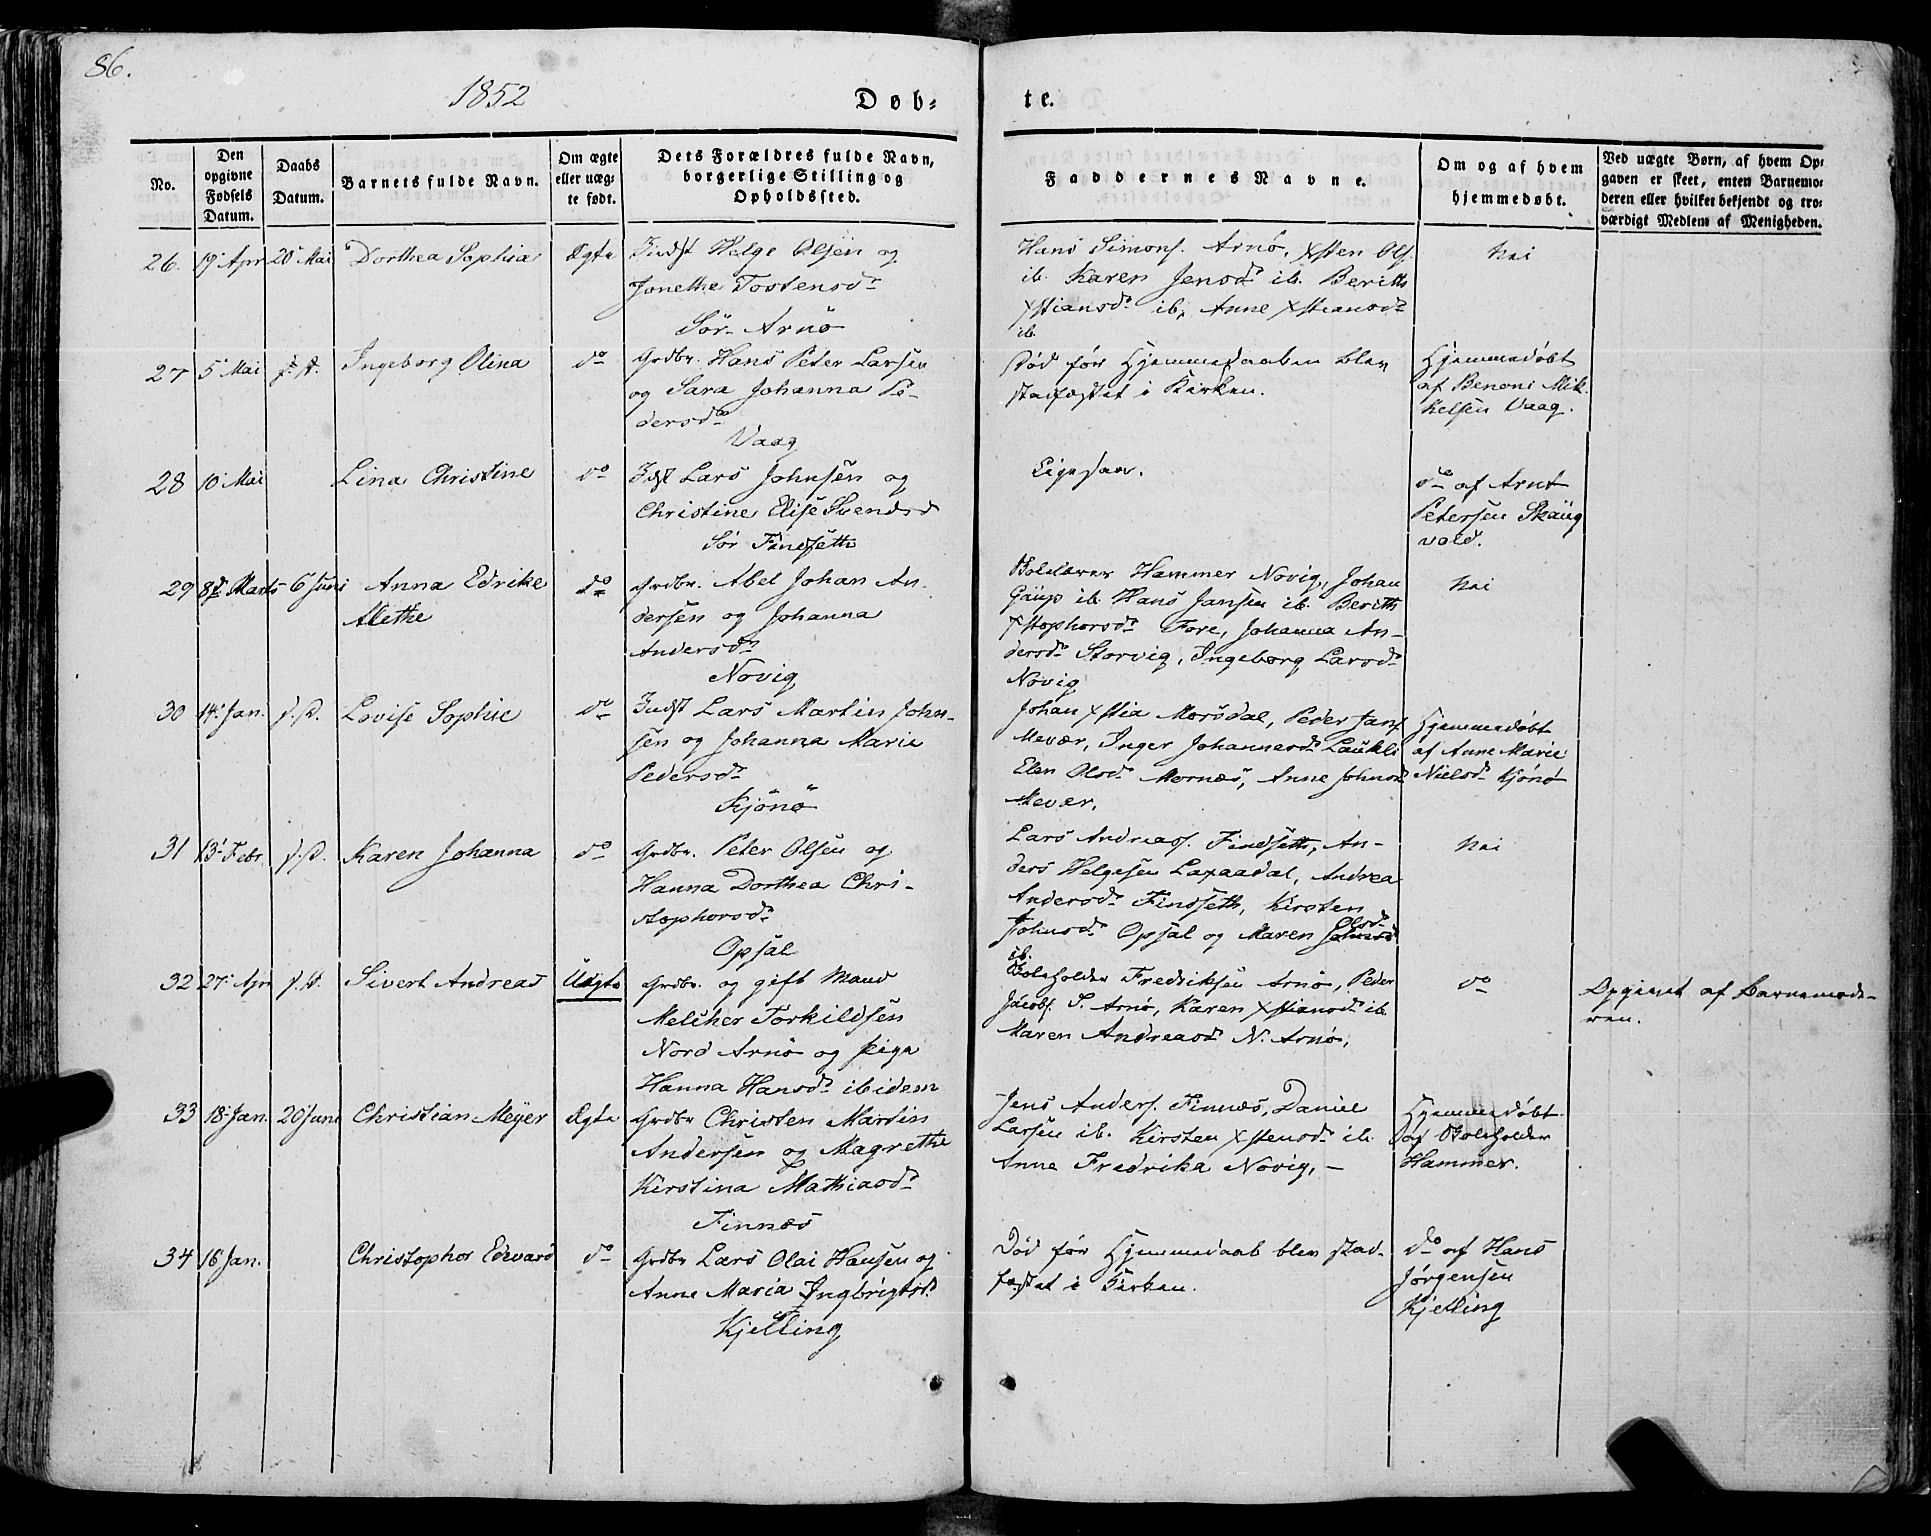 86.
1852
Døb-
te.
No.
Den opgivne Fødsels Datum.
Daabs Datum.
Barnets fulde Navn.
Om ægte eller uæg- te født.
Dets Forældres fulde Navn, borgerlige Stilling og Opholdssted.
Faddernes Navne.
Om og af hvem hjemmedøbt.
Ved uægte Børn, af hvem Op- gaven er skeet, enten Barnemo- deren eller hvilket bekjendt og tro- værdigt Medlem af Menigheden.
26. 19 Apr 20 Mai Dorthea Sophia Ægte
Indst Helge Olsen og
Jonetha Tostensdr
Sör Arnö
Hans Simons. Arnø, Xsten Ols.
ib. Karen Jensdr ib. Berith
Xstiansdr ib, Anne Xstiansdr
ib.
Nei
27 5 Mai s. D. Ingeborg Olina do
Grdbr. Hans Peter Larsen
og Sara Johanna Pe-
dersdr
Vaag
Død før Hjemmedaaben blev
stadfæstet i Kirken.
Hjemmedøbt
af Benoni Mik
kelsen Vaag.
28 10 Mai Lina Christine do
Idst Lars Johnsen og
Christine Elise Svendsd
Sör Findseth
Ligesaa.
do af Arnt
Petersen Skaug
vold.
29 8de Marts 6 Juni Anna Edrike
Alethe
do
Grdbr. Abel Johan An-
dersen og Johanna
Andersdr
Novig
Skolelærer Hammer Novig, Johan
Gaup ib. Hans Jansen ib. Berith
Xstophorsdr Fore, Johanna An-
dersdr Storvig, Ingeborg Larsdr
Novig
Nei
30 14 Jan. s. D. Lovise Sophie do
Indst Lars Martin John-
sen og Johanna Marie
Pedersdr
Kjönö
Johan Xstia Morsdal, Peder Jans
Mevær, Inger Johannesdr Laukli
Elen Olsdr Mornæs, Anne Johnsdr
Mevær.
Hjemmedøbt
af Anne Marie
Nielsdr Kjönö
31 13 Febr. s. D. Karen Johanna do
Grdbr. Peter Olsen og
Hanna Dorthea Chri-
stophorsdr
Opsal
Lars Andreas. Findseth, An-
ders Helgesen Laxaadal, Andrea
Andersdr Findseth, Kirsten
Johnsdr Opsal og Maren Olsdr
ib.
Nei
32 27 Apr s. D. Sivert Andreas Uægte
Grdbr. og gift Mand
Melcher Torkildsen
Nord Arnö og Piga
Hanna Hansdr ibidem
Skoleholder Fredriksen Arnø, Peder
Jacobs. S. Arnø, Karen Xstiansdr ib
Maren Andreasdr N. Arnø.
do
Opgivet af Barnemode-
ren.
33 18 Jan. 20 Juni Christian Meyer Ægte
Grdbr Christen Martin
Andersen og Magrethe
Kirstina Mathiasdr
Finnæs
Jens Anders. Finnæs, Daniel
Larsen ib. Kirsten Xstensdr ib.
Anne Fredrika Novig, –
Hjemmedøbt
af Skoleholder
Hammer.
34 16 Jan. Christophor Edevard do
Grdbr Lars Olai Hansen og
Anne Maria Ingbrigtsdr
Kjelling
Død før Hjemmedaab blev stad-
fæstet i Kirken.
do af Hans
Jørgensen
Kjelling